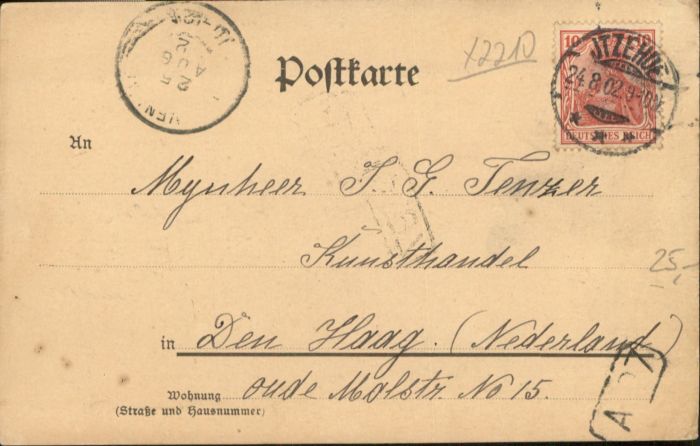 Postkarte
x2210
10 10
DEUTSCHES REICH
ITZEHOE
24.8.02.9-10V.
An
Mynheer J. G. Tenzer
Kunsthandel
25,-
in Den Haag. (Nederland)
Wohnung oude Molstr. No 15.
(Straße und Hausnummer)